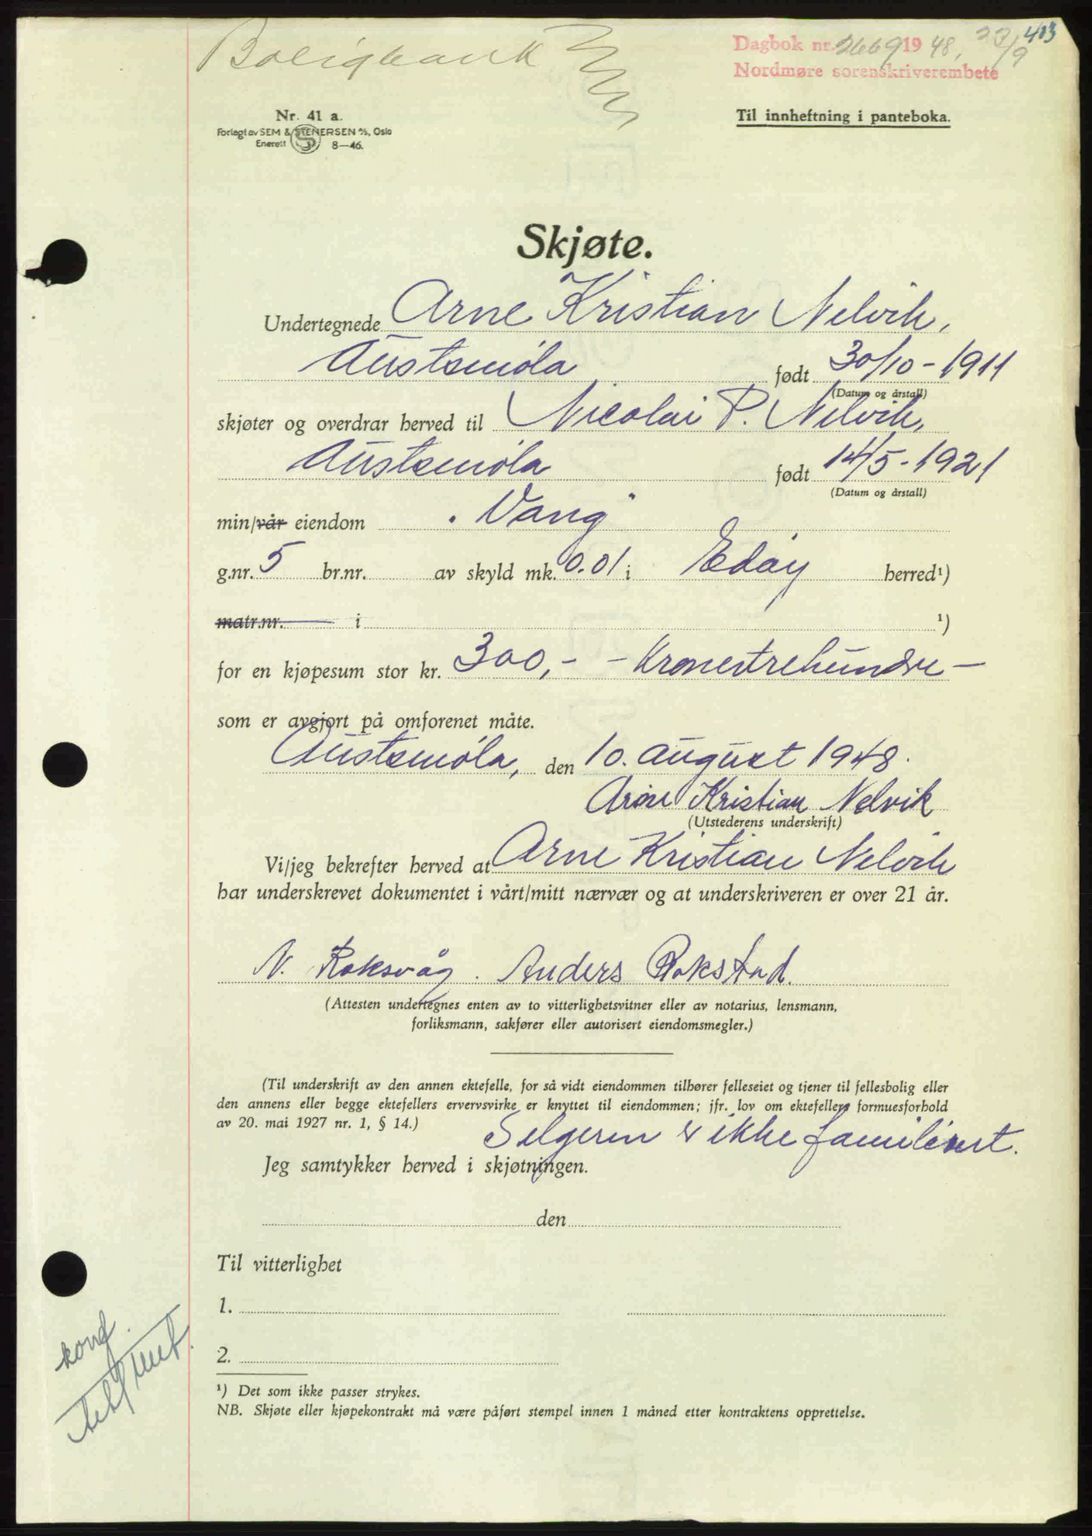 Boligbank
Dagbok nr. 2669 1948, 23/9 413
Nordmøre sorenskriverembete
Nr. 41 a.
Forlagt av SEM & STENERSEN A/S, Oslo
Enerett S 8—46.
Til innheftning i panteboka.
Skjøte.
Undertegnede Arne Kristian Nelvik,
Austsmøla født 30/10 - 1911
(Datum og årstall)
skjøter og overdrar herved til Nicolai P. Nelvik,
Austsmøla født 14/5 - 1921
(Datum og årstall)
min/vår eiendom "Vang"
g.nr. 5 br.nr. av skyld mk. 0.01 i Edøy herred¹)
matr.nr. i ¹)
for en kjøpesum stor kr. 300,- - Kronertrehundre -
som er avgjort på omforenet måte.
Austsmøla, den 10. august 1948.
Arne Kristian Nelvik
(Utstederens underskrift)
Vi/jeg bekrefter herved at Arne Kristian Nelvik
har underskrevet dokumentet i vårt/mitt nærvær og at underskriveren er over 21 år.
N. Roksvåg. Anders Rokstad.
(Attesten undertegnes enten av to vitterlighetsvitner eller av notarius, lensmann,
forliksmann, sakfører eller autorisert eiendomsmegler.)
(Til underskrift av den annen ektefelle, for så vidt eiendommen tilhører felleseiet og tjener til fellesbolig eller
den annens eller begge ektefellers ervervsvirke er knyttet til eiendommen; jfr. lov om ektefellers formuesforhold
av 20. mai 1927 nr. 1, § 14.)
Selgeren er ikke familiært.
Jeg samtykker herved i skjøtningen.
den
Til vitterlighet
1.
2.
konf.
¹) Det som ikke passer strykes.
NB. Skjøte eller kjøpekontrakt må være påført stempel innen 1 måned etter kontraktens opprettelse.